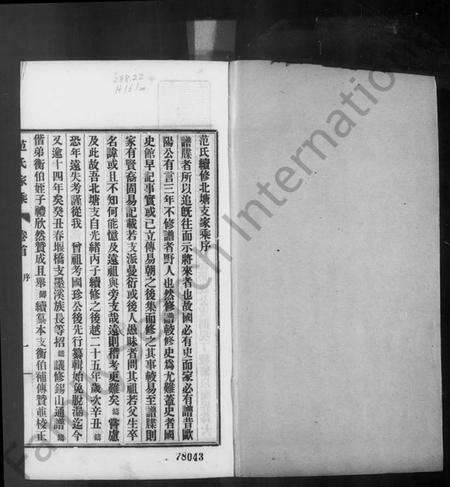 范氏續修北塘支家乘序
譜牒者所以追既往而示將來者也故國必有史而家必有譜昔歐
陽公有言三年不修譜者野人也然修譜較修史爲尤難蓋史者國
史館早記事實或已立傳易朝之後集而修之其事較易至譜牒則
家有賢裔固易記載若支派蔓衍或後人愚昧者問其祖若父生卒
名諱或且不知何能憶及遠祖與旁支哉遠則稽考更難矣 嘗慮
及此故吾北塘支自光緒丙子續修之後越二十五年歲次辛丑
恐年遠失考謹從我 曾祖考國珍公後先行纂輯始免脫漏迄今
又遠十四年矣癸丑春堰橋支墨溪族長等招 議修錫山通譜
偕弟衡伯姪子禮欣然贊成且舉 續纂本支衡伯補傳贊並校正
范氏家乘 卷首 序 一
288.22
78043